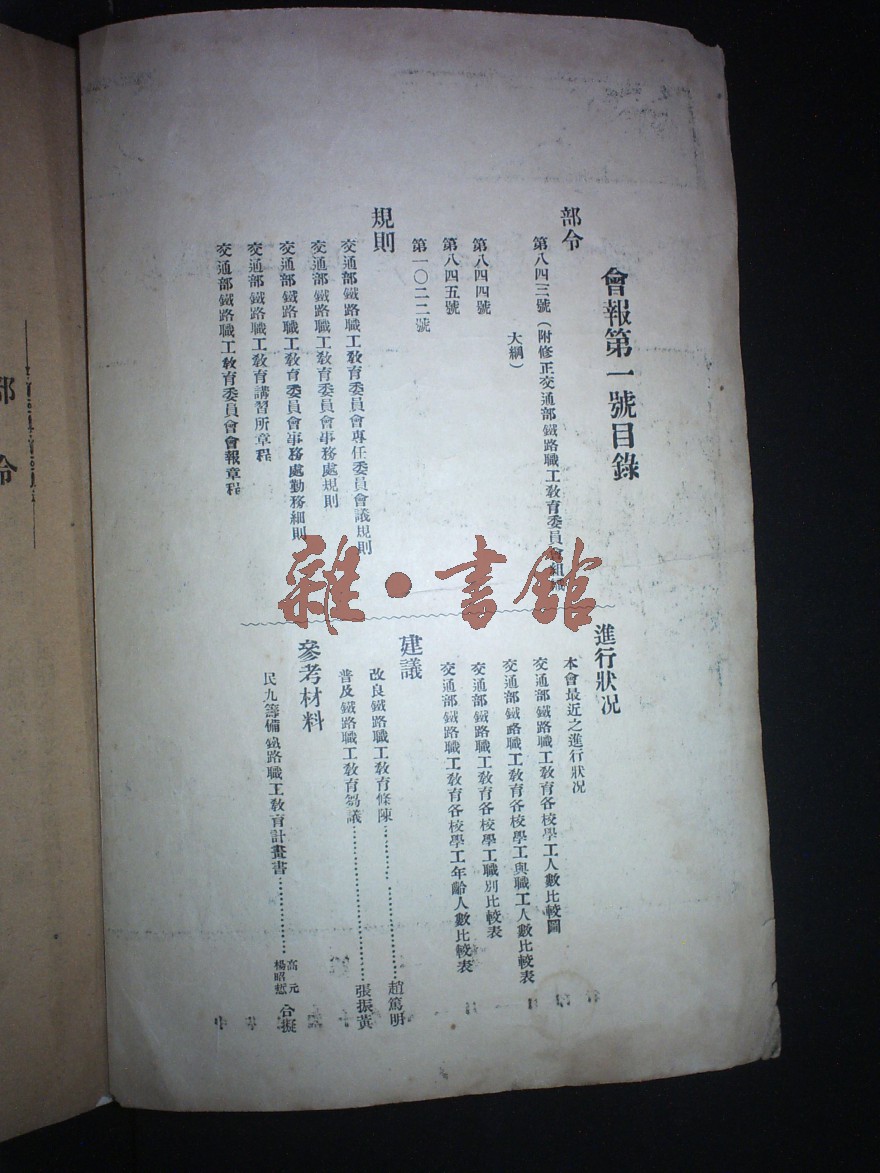 會報第一號目錄
部令
第八四三號（附修正交通部鐵路職工教育委員會組織
大綱）
第八四四號
第八四五號
第一〇二二號
規則
交通部鐵路職工教育委員會專任委員會議規則
交通部鐵路職工教育委員會事務處規則
交通部鐵路職工教育委員會事務處勤務細則
交通部鐵路職工教育講習所章程
交通部鐵路職工教育委員會會報章程
進行狀况
本會最近之進行狀况
交通部鐵路職工教育各校學工人數比較圖
交通部鐵路職工教育各校學工與職工人數比較表
交通部鐵路職工教育各校學工職別比較表
交通部鐵路職工教育各校學工年齡人數比較表
建議
改良鐵路職工教育條陳………………趙篤明
普及鐵路職工教育芻議………………張振黃
參考材料
民九籌備鐵路職工教育計畫書………………高元 楊昭悊 合擬
部令
雜·書館